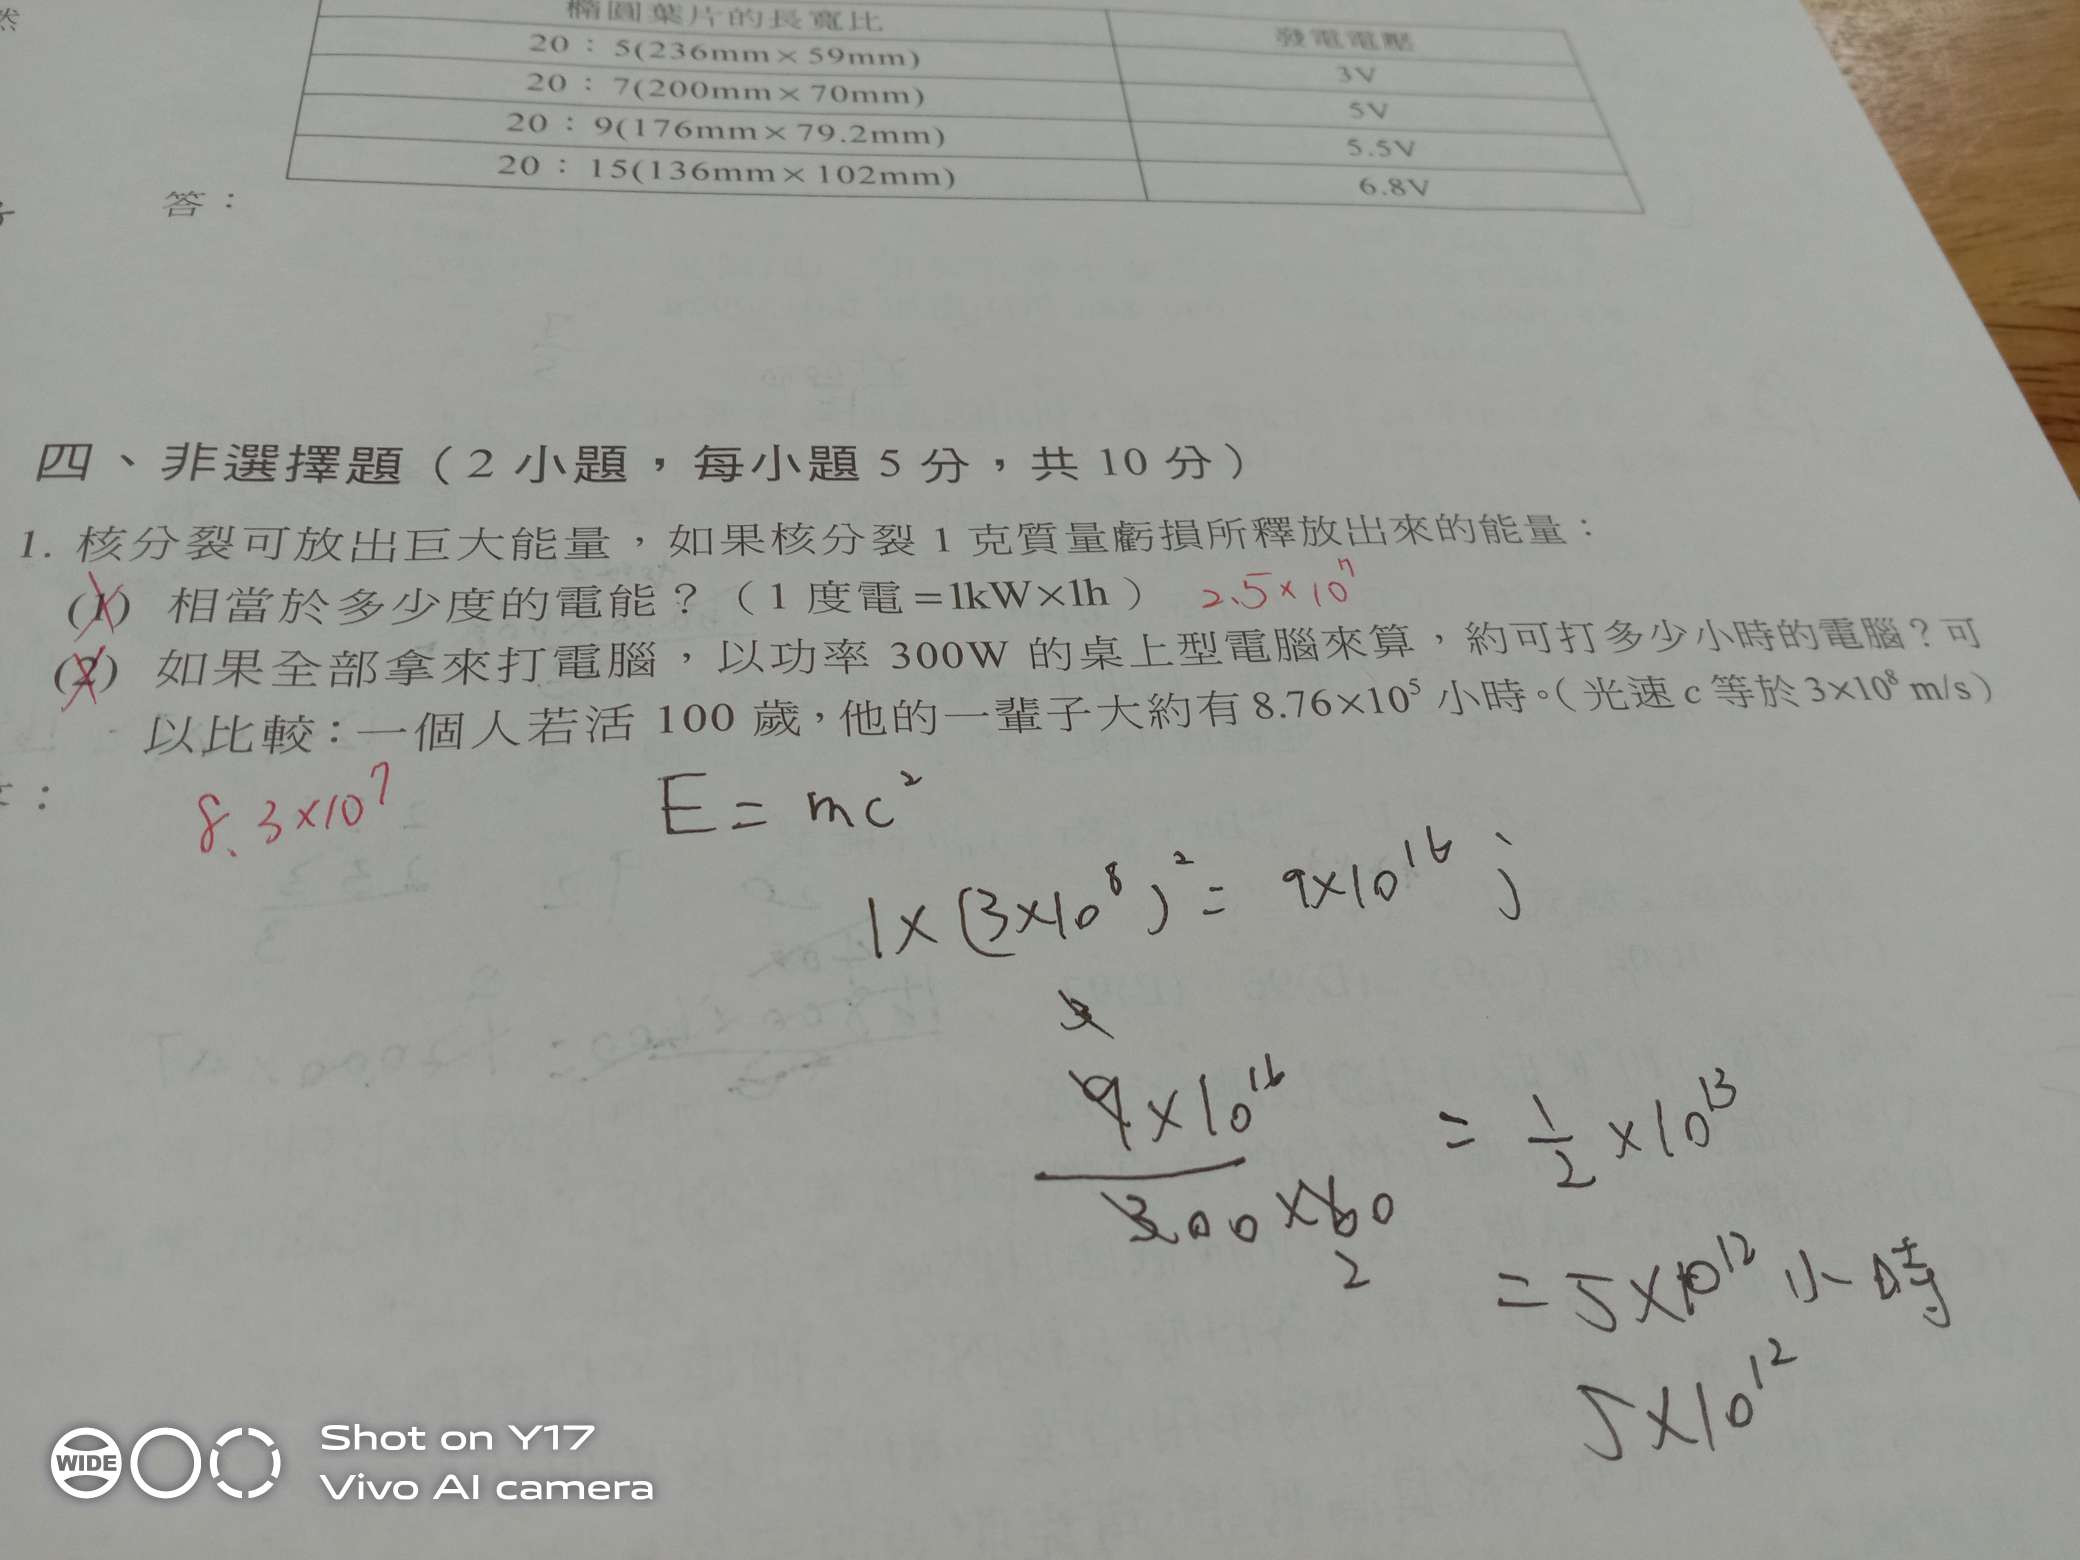 然
橢圓葉片的長寬比 發電電壓
20：5(236mm×59mm) 3V
20：7(200mm×70mm) 5V
20：9(176mm×79.2mm) 5.5V
20：15(136mm×102mm) 6.8V
答：
四、非選擇題（2 小題，每小題 5 分，共 10 分）
1. 核分裂可放出巨大能量，如果核分裂 1 克質量虧損所釋放出來的能量：
(1) 相當於多少度的電能？（1 度電=1kW×1h） 2.5×10⁷
(2) 如果全部拿來打電腦，以功率 300W 的桌上型電腦來算，約可打多少小時的電腦？可
以比較：一個人若活 100 歲，他的一輩子大約有 8.76×10⁵ 小時。（光速 c 等於 3×10⁸ m/s）
8.3×10⁷
E = mc²
1×(3×10⁸)² = 9×10¹⁶ j
9×10¹⁶
300×60
2
= 1/2 ×10¹³
= 5×10¹² 小時
5×10¹²
WIDE
Shot on Y17
Vivo AI camera